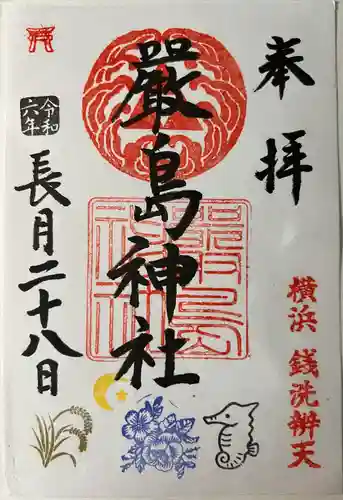 奉拝
横浜 銭洗辨天
嚴島神社
令和
六年
長月二十八日